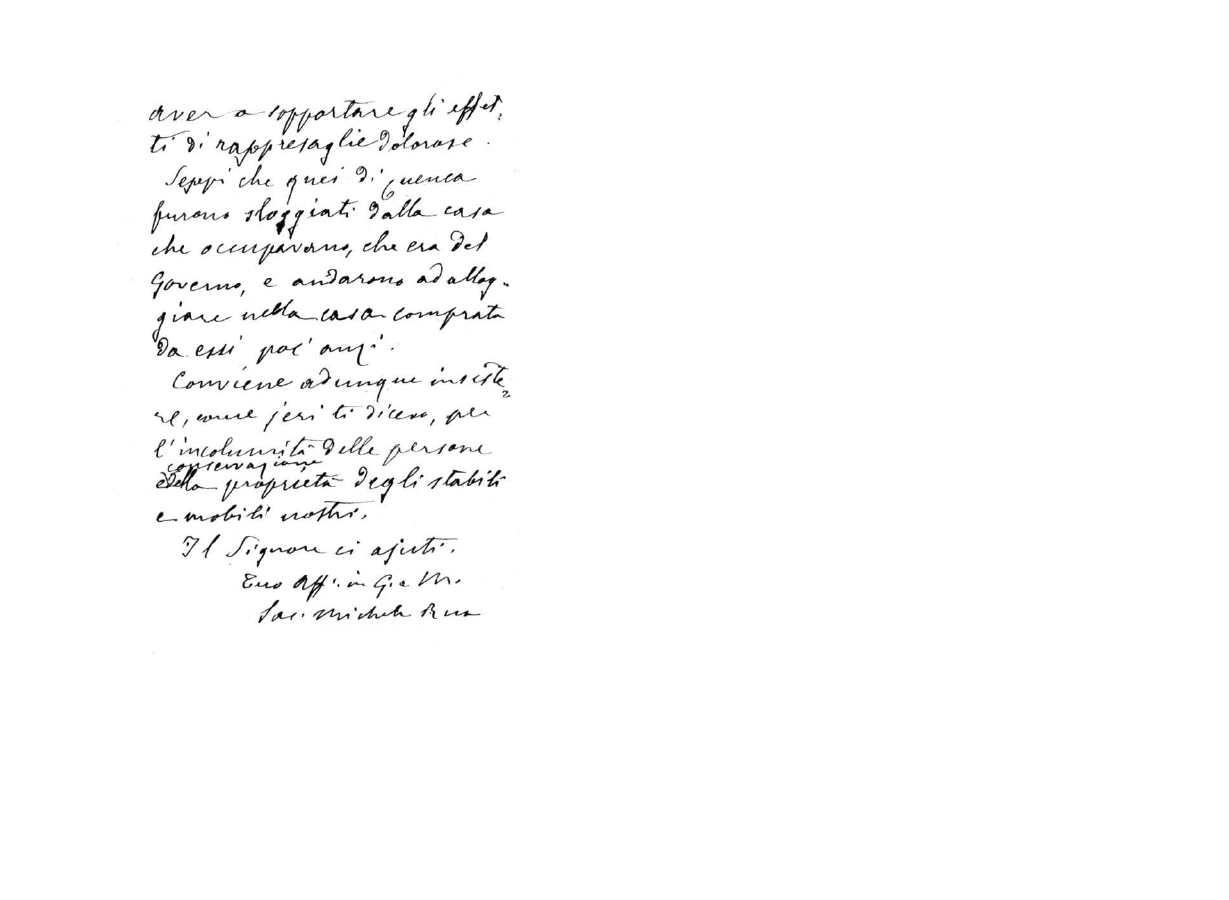 aver a sopportare gli effet-
ti di rappresaglie dolorose.
Seppi che quei di Cuenca
furono sloggiati dalla casa
che occupavano, che era del
Governo, e andarono ad allog-
giare nella casa comprata
da essi poc' anzi.
Conviene adunque insiste-
re, come jeri ti dicevo, per
l'incolumità delle persone
conservazione
e della proprietà degli stabili
e mobili nostri.
Il Signore ci ajuti.
Tuo Aff. in G. e M.
Sac. Michele Rua